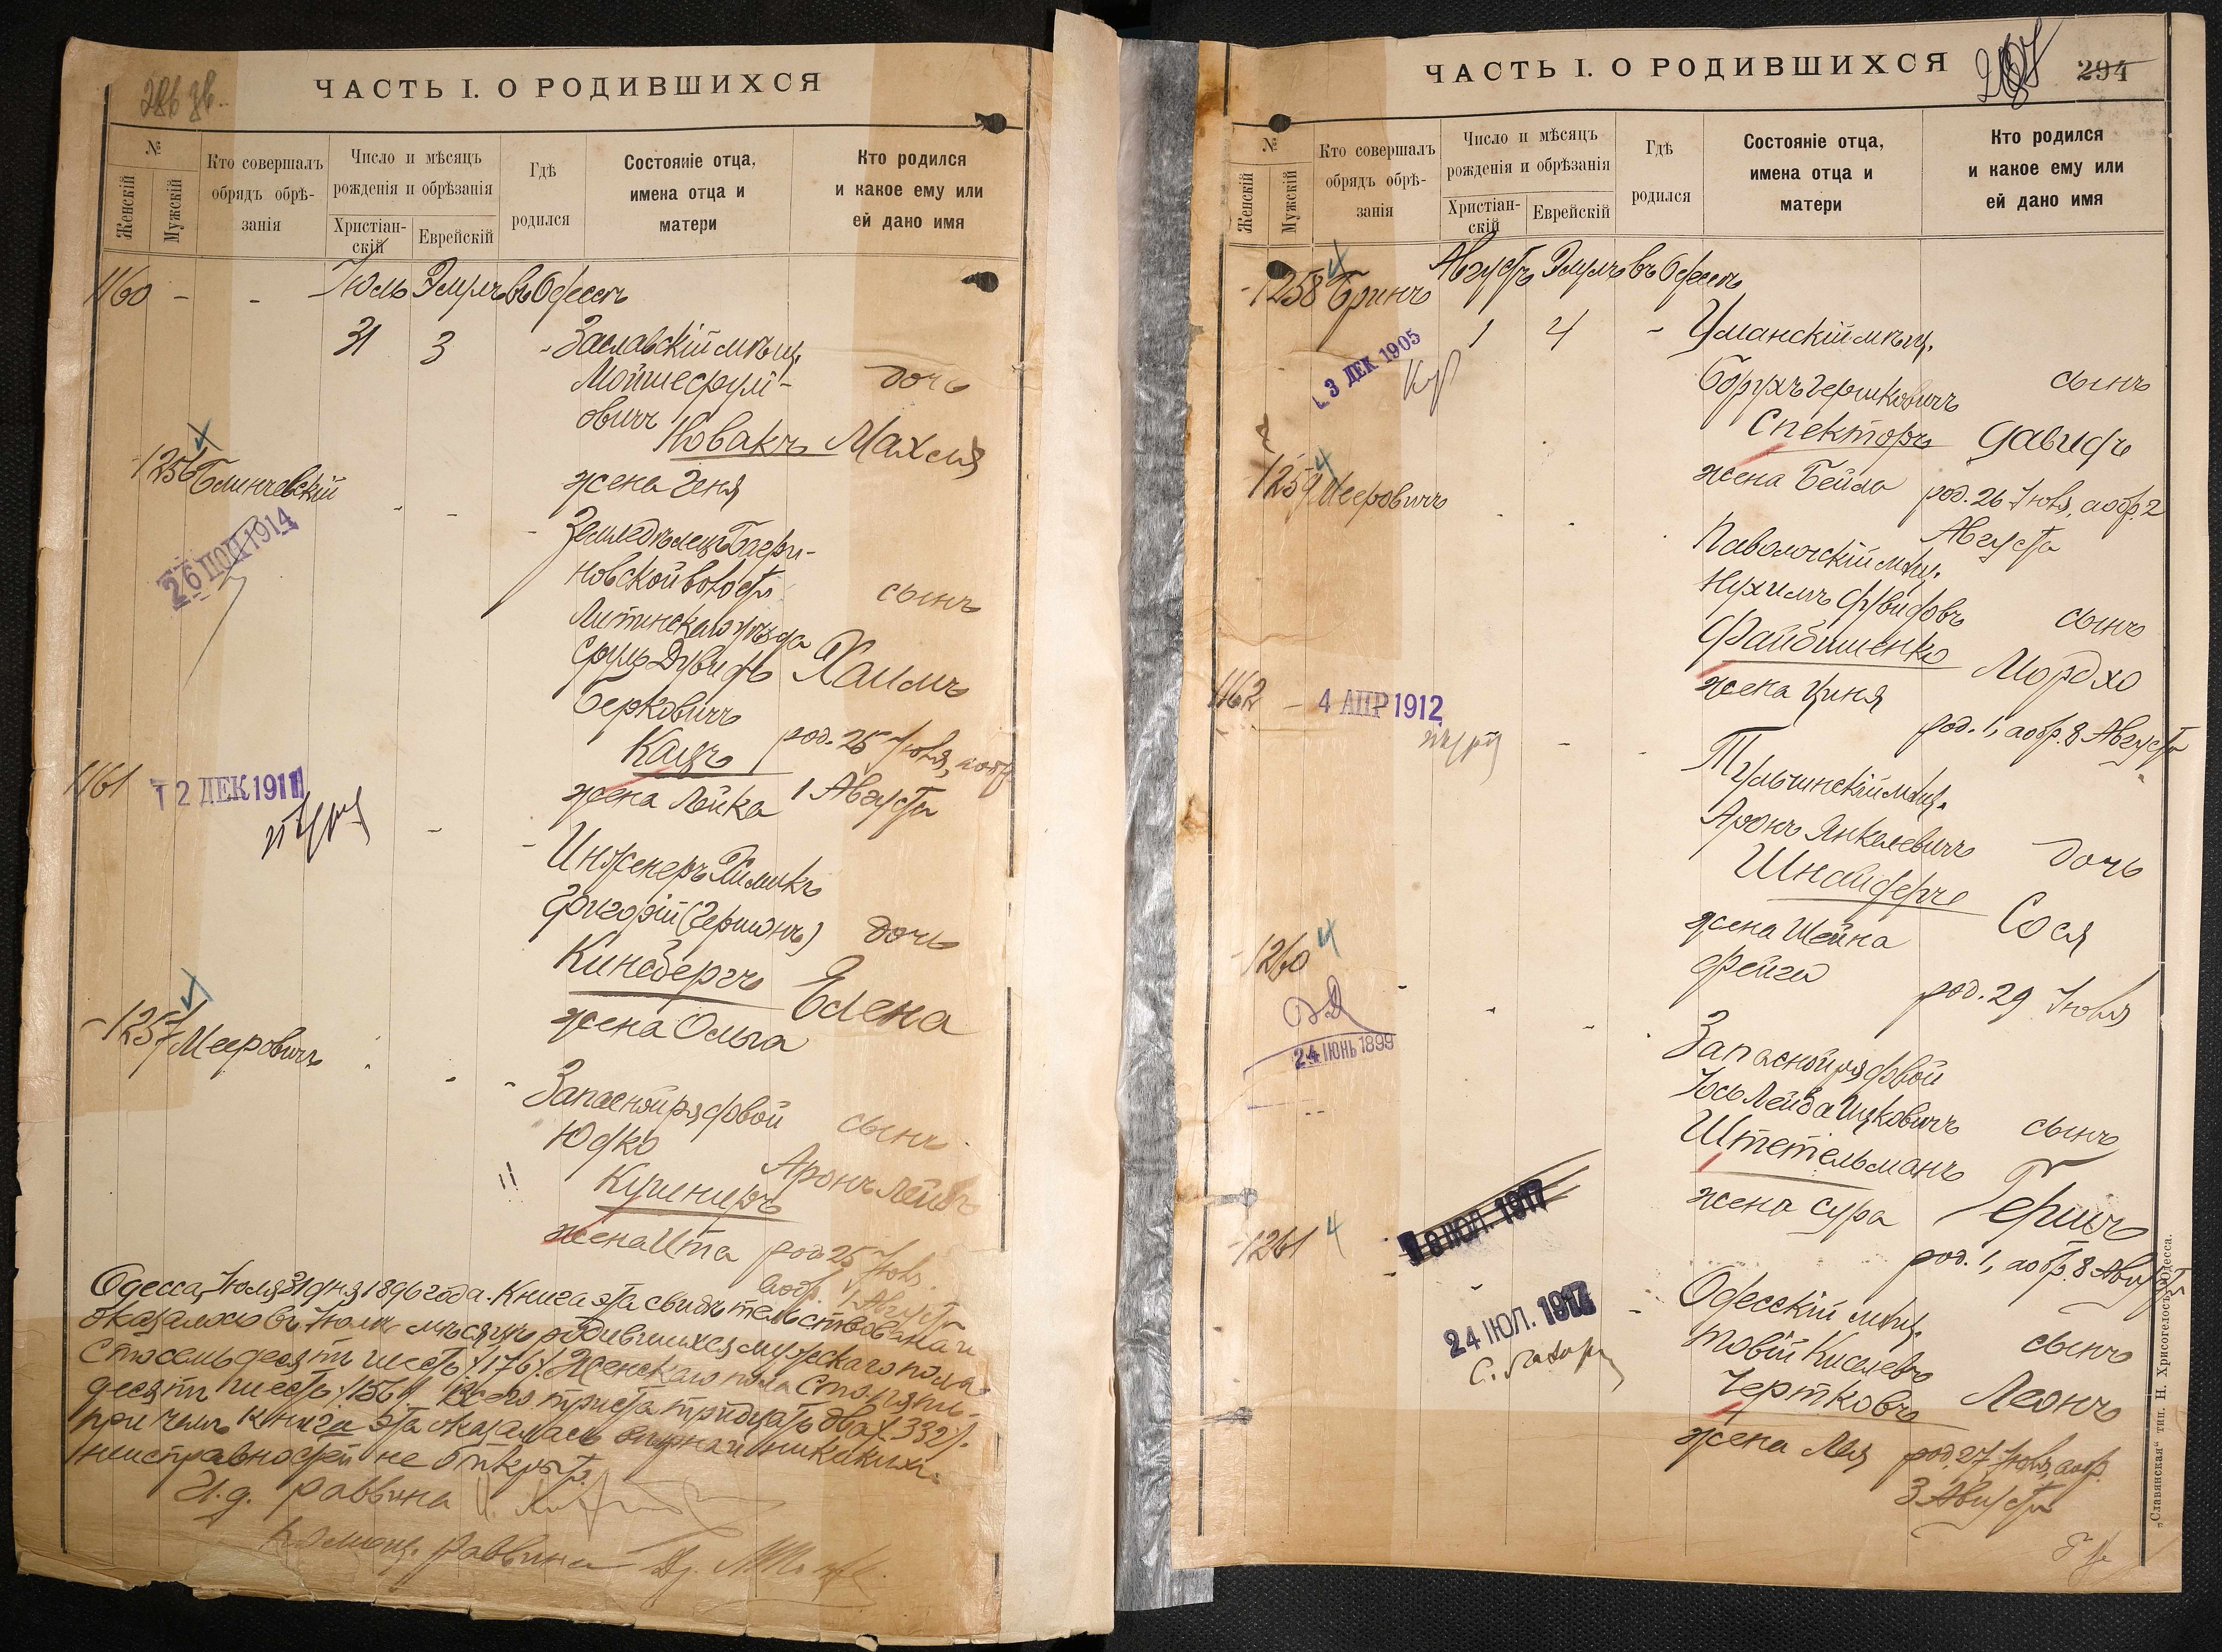 ЧАСТЬ I. О РОДИВШИХСЯ
№
Женскій
Мужскій
Кто совершалъ
обрядъ обрѣ-
занія
Число и мѣсяцъ
рожденія и обрѣзанія
Христіан-
скій
Еврейскій
Гдѣ
родился
Состояніе отца,
имена отца и
матери
Кто родился
и какое ему или
ей дано имя
1160 - - Іюль Элулъ въ Одессѣ
31 3 - Заславскій мѣщ.
Мойше Срул-
овичъ
дочь
Новакъ Махля
жена Геня
1256 Блинчевскій
26 1914
- Земледѣлецъ Багри-
новской волости
Литинскаго уѣзда
сынъ
Сруль Дувидъ Хаимъ
Берковичъ
Кацъ
род. 25 Іюля, а обр.
жена Лейка 1 Августа
1161 12 ДЕК 1911
- Инженеръ Химикъ
Григорій (Гершонъ) дочь
Кинсбергъ Елена
жена Ольга
1257 Мееровичъ
- Запасной рядовой сынъ
Юдко
Аронъ Лейбъ
Кушниръ
жена Ита род. 25 Іюля
а обр. 1 Августа
Одесса, Іюля 31 дня 1896 года. Книга эта свидѣтельствована и
оказалось въ Іюлѣ мѣсяцѣ родившихся мужескаго пола
сто семьдесятъ шесть /176/. Женскаго пола сто пять-
десятъ шесть /156/ всего триста тридцать два /332/.
при чемъ книга эта оказалась вѣрной и никакихъ
неисправностей не открыто.
И. д. раввина
Помощ. раввина
ЧАСТЬ I. О РОДИВШИХСЯ
294
№
Женскій
Мужскій
Кто совершалъ
обрядъ обрѣ-
занія
Число и мѣсяцъ
рожденія и обрѣзанія
Христіан-
скій
Еврейскій
Гдѣ
родился
Состояніе отца,
имена отца и
матери
Кто родился
и какое ему или
ей дано имя
1258 Бринъ Августъ Элулъ въ Одессѣ
3 ДЕК 1905
1 4 - Уманскій мѣщ.
Борухъ Гершковичъ сынъ
Спекторъ Давидъ
жена Бейла род. 26 Іюля, а обр. 2
Августа
1259 Мееровичъ
Паволочскій мѣщ.
Нухимъ Дувидовъ сынъ
Файбишенко Мордхо
жена Циня
род. 1, а обр. 8 Августа
1162 - 4 АПР 1912
Тульчинскій мѣщ.
Аронъ Янкелевичъ дочь
Шнайдеръ
жена Шейна Сося
Фейга
род. 29 Іюля
1260
24 ІЮНЬ 1899
Запасной рядовой
Іось Лейба Ицковичъ сынъ
Штетельманъ Гершъ
жена Сура
род. 1, а обр. 8 Августа
1261
ІЮЛ. 1917
24 ІЮЛ. 1917
- Одесскій мѣщ.
Товій Киселевъ сынъ
Чертковъ Леонъ
жена Лея род. 27 Іюля, а обр.
3 Августа
„Славянская“ тип. Н. Хрисогелосъ, Одесса.